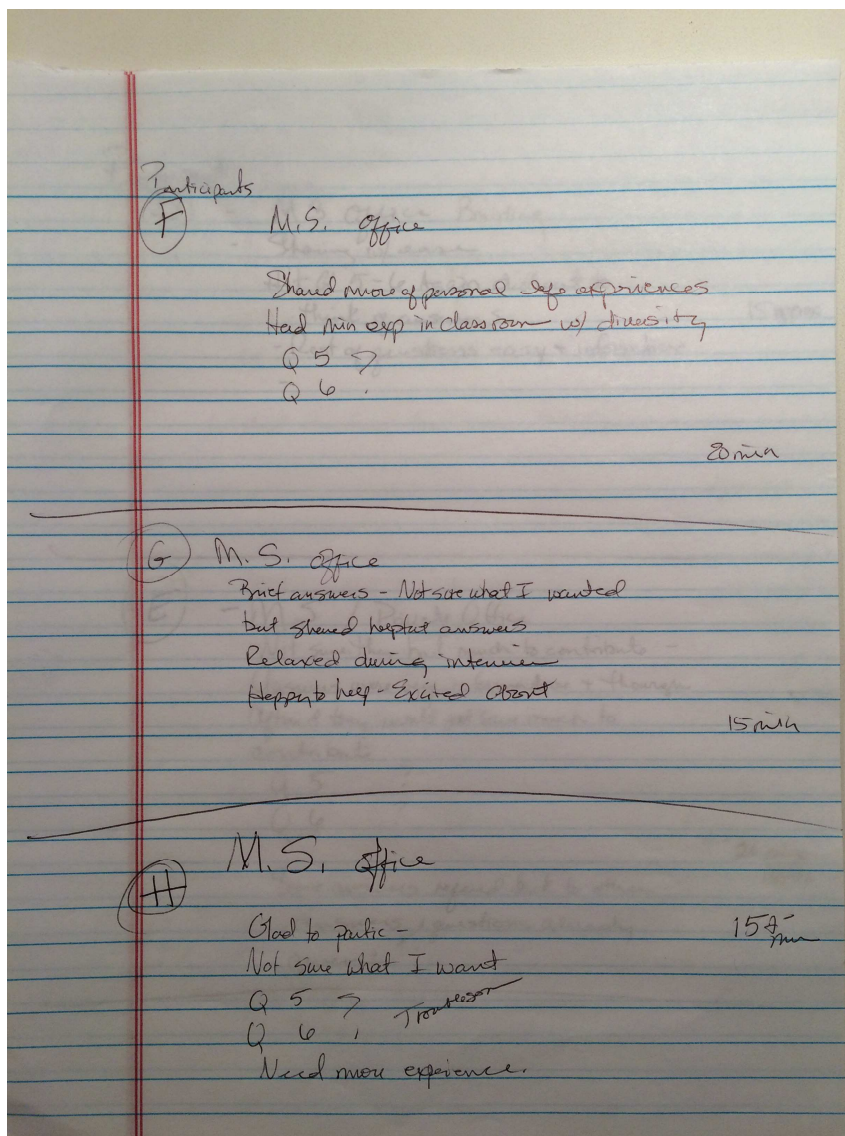 Participants
F M.S. office
Shared more of personal life experiences
Had min exp in classroom w/ diversity
Q 5 ?
Q 6
20 min
G M.S. office
Brief answers - Not sure what I wanted
but shared helpful answers
Relaxed during interview
Happy to help - Excited about
15 min
H M.S. office
Glad to partic -
15 min
Not sure what I want
Q 5 ?
Q 6 Troublesom
Need more experience.